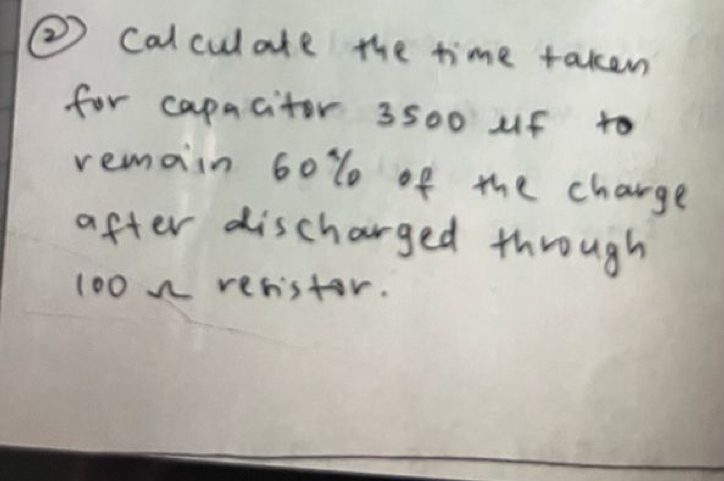 ② Calculate the time taken
for capacitor 3500 μf to
remain 60% of the charge
after discharged through
100 Ω resistor.